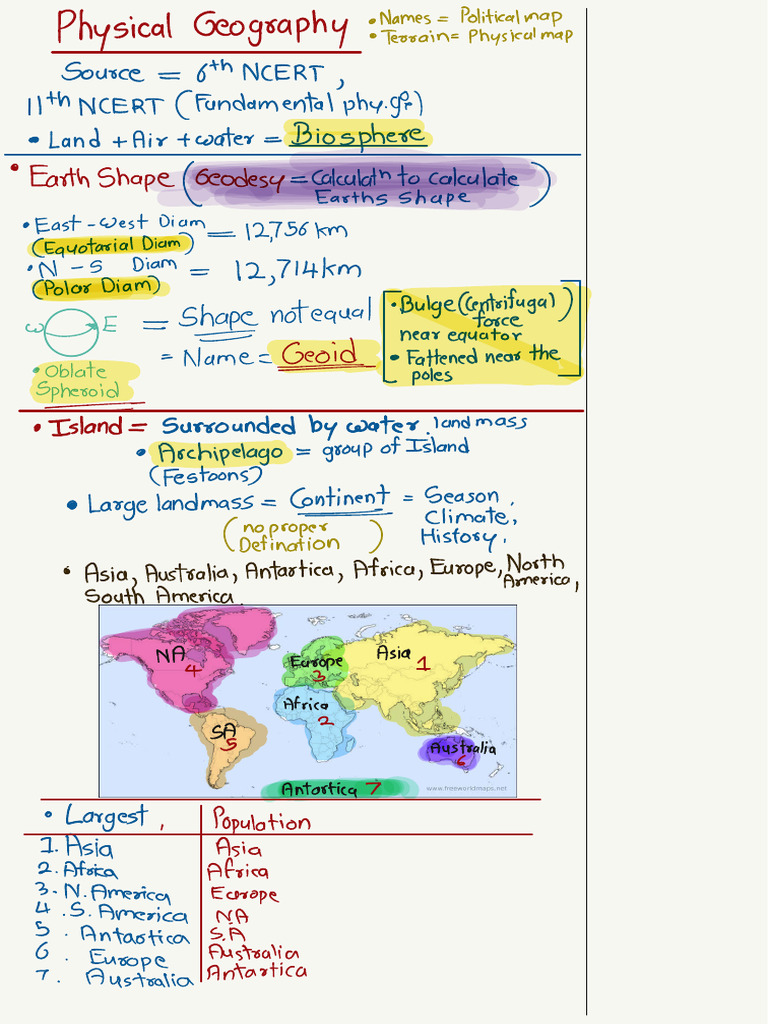 Physical Geography
• Names = Political map
• Terrain = Physical map
Source = 6th NCERT,
11th NCERT (Fundamental phy. gr)
• Land + Air + water = Biosphere
• Earth Shape (Geodesy = Calculatn to calculate
Earths shape)
• East-west Diam = 12,756 km
(Equotarial Diam)
• N-S Diam = 12,714 km
(Polar Diam)
W E = Shape not equal
= Name = Geoid
• Oblate
Spheroid
• Bulge (Centrifugal
force)
near equator
• Fattened near the
poles
• Island = Surrounded by water. landmass
• Archipelago = group of Island
(Festoons)
• Large landmass = Continent = Season,
Climate,
History,
(no proper
Defination)
• Asia, Australia, Antartica, Africa, Europe, North
America,
South America
NA
4
Europe
3
Asia
1
Africa
2
SA
5
Australia
6
Antartica 7
www.freeworldmaps.net
• Largest, Population
1. Asia Asia
2. Africa Africa
3. N. America Europe
4. S. America NA
5. Antartica S.A
6. Europe Australia
7. Australia Antartica